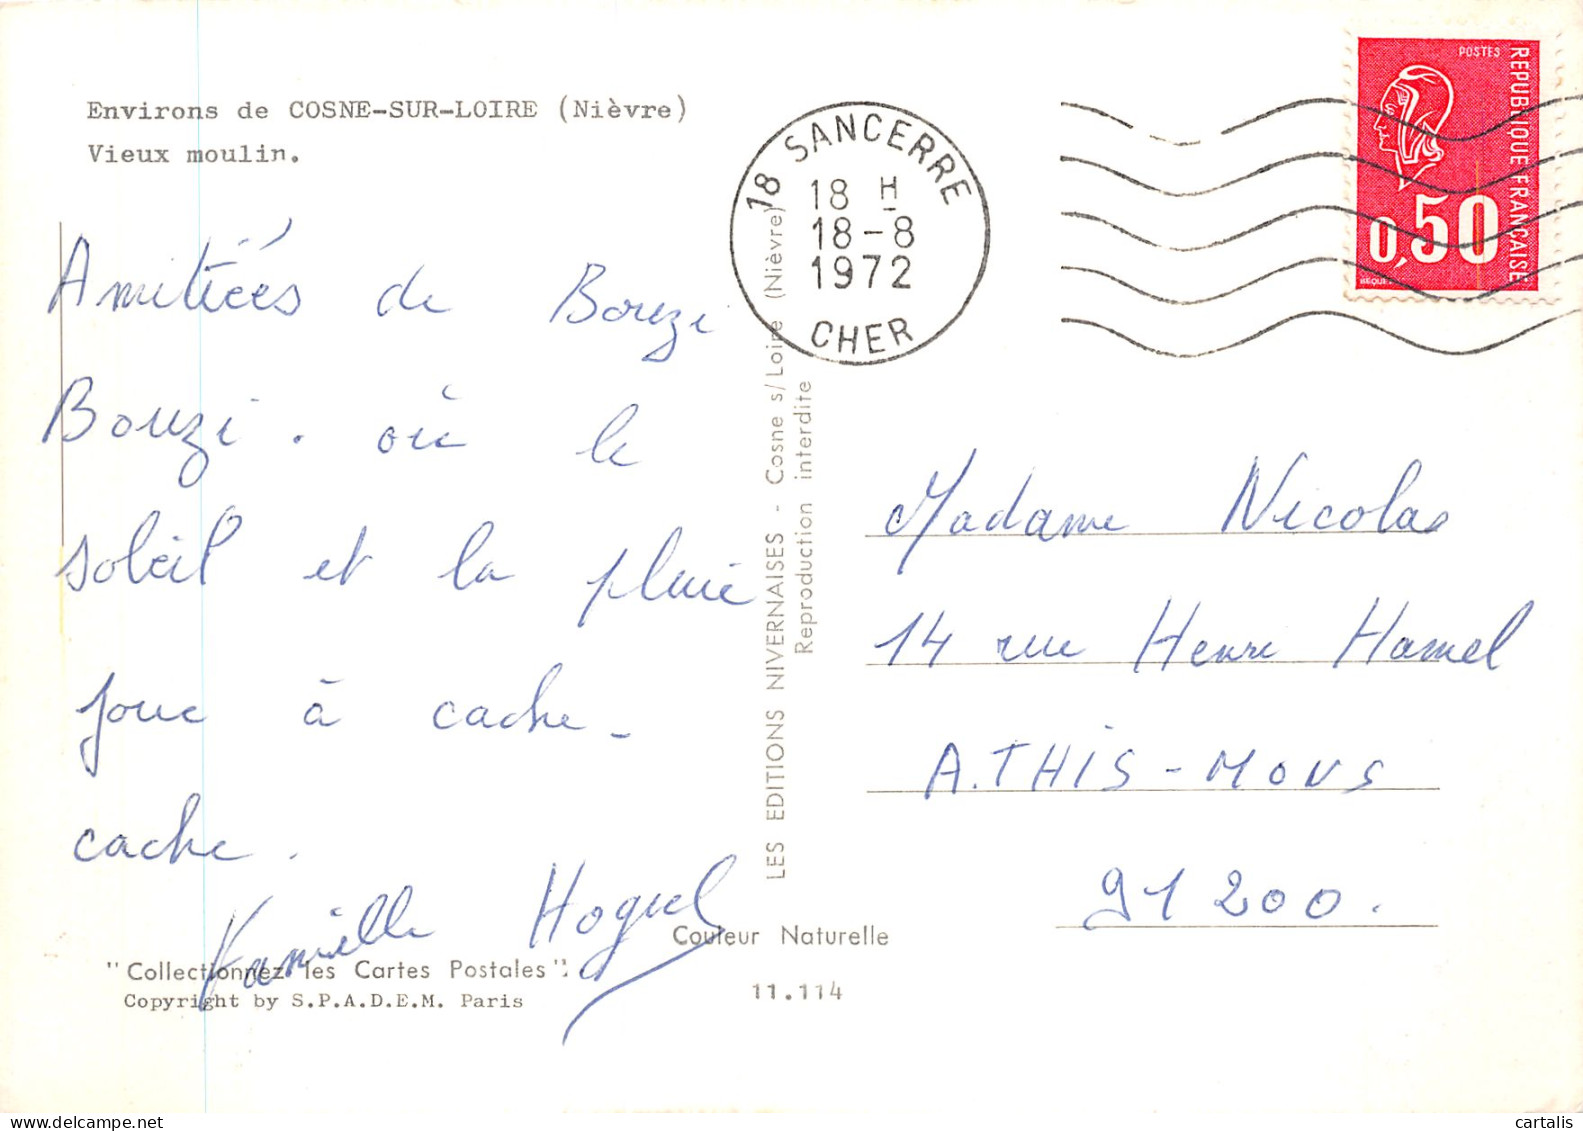 Environs de COSNE-SUR-LOIRE (Nièvre)
Vieux moulin.
18 SANCERRE
18 H
18-8
1972
CHER
POSTES
REPUBLIQUE FRANÇAISE
0,50
Amitiés de Bouzi
Bouzi. où le
soleil et la pluie
joue à cache-
cache.
Famille Hoguel
LES EDITIONS NIVERNAISES - Cosne s/Loire (Nièvre)
Reproduction interdite
Madame Nicolas
14 rue Henri Hamel
A.THIS-MONS
91200.
Couleur Naturelle
"Collectionnez les Cartes Postales":
Copyright by S.P.A.D.E.M. Paris
11.114
cartalis